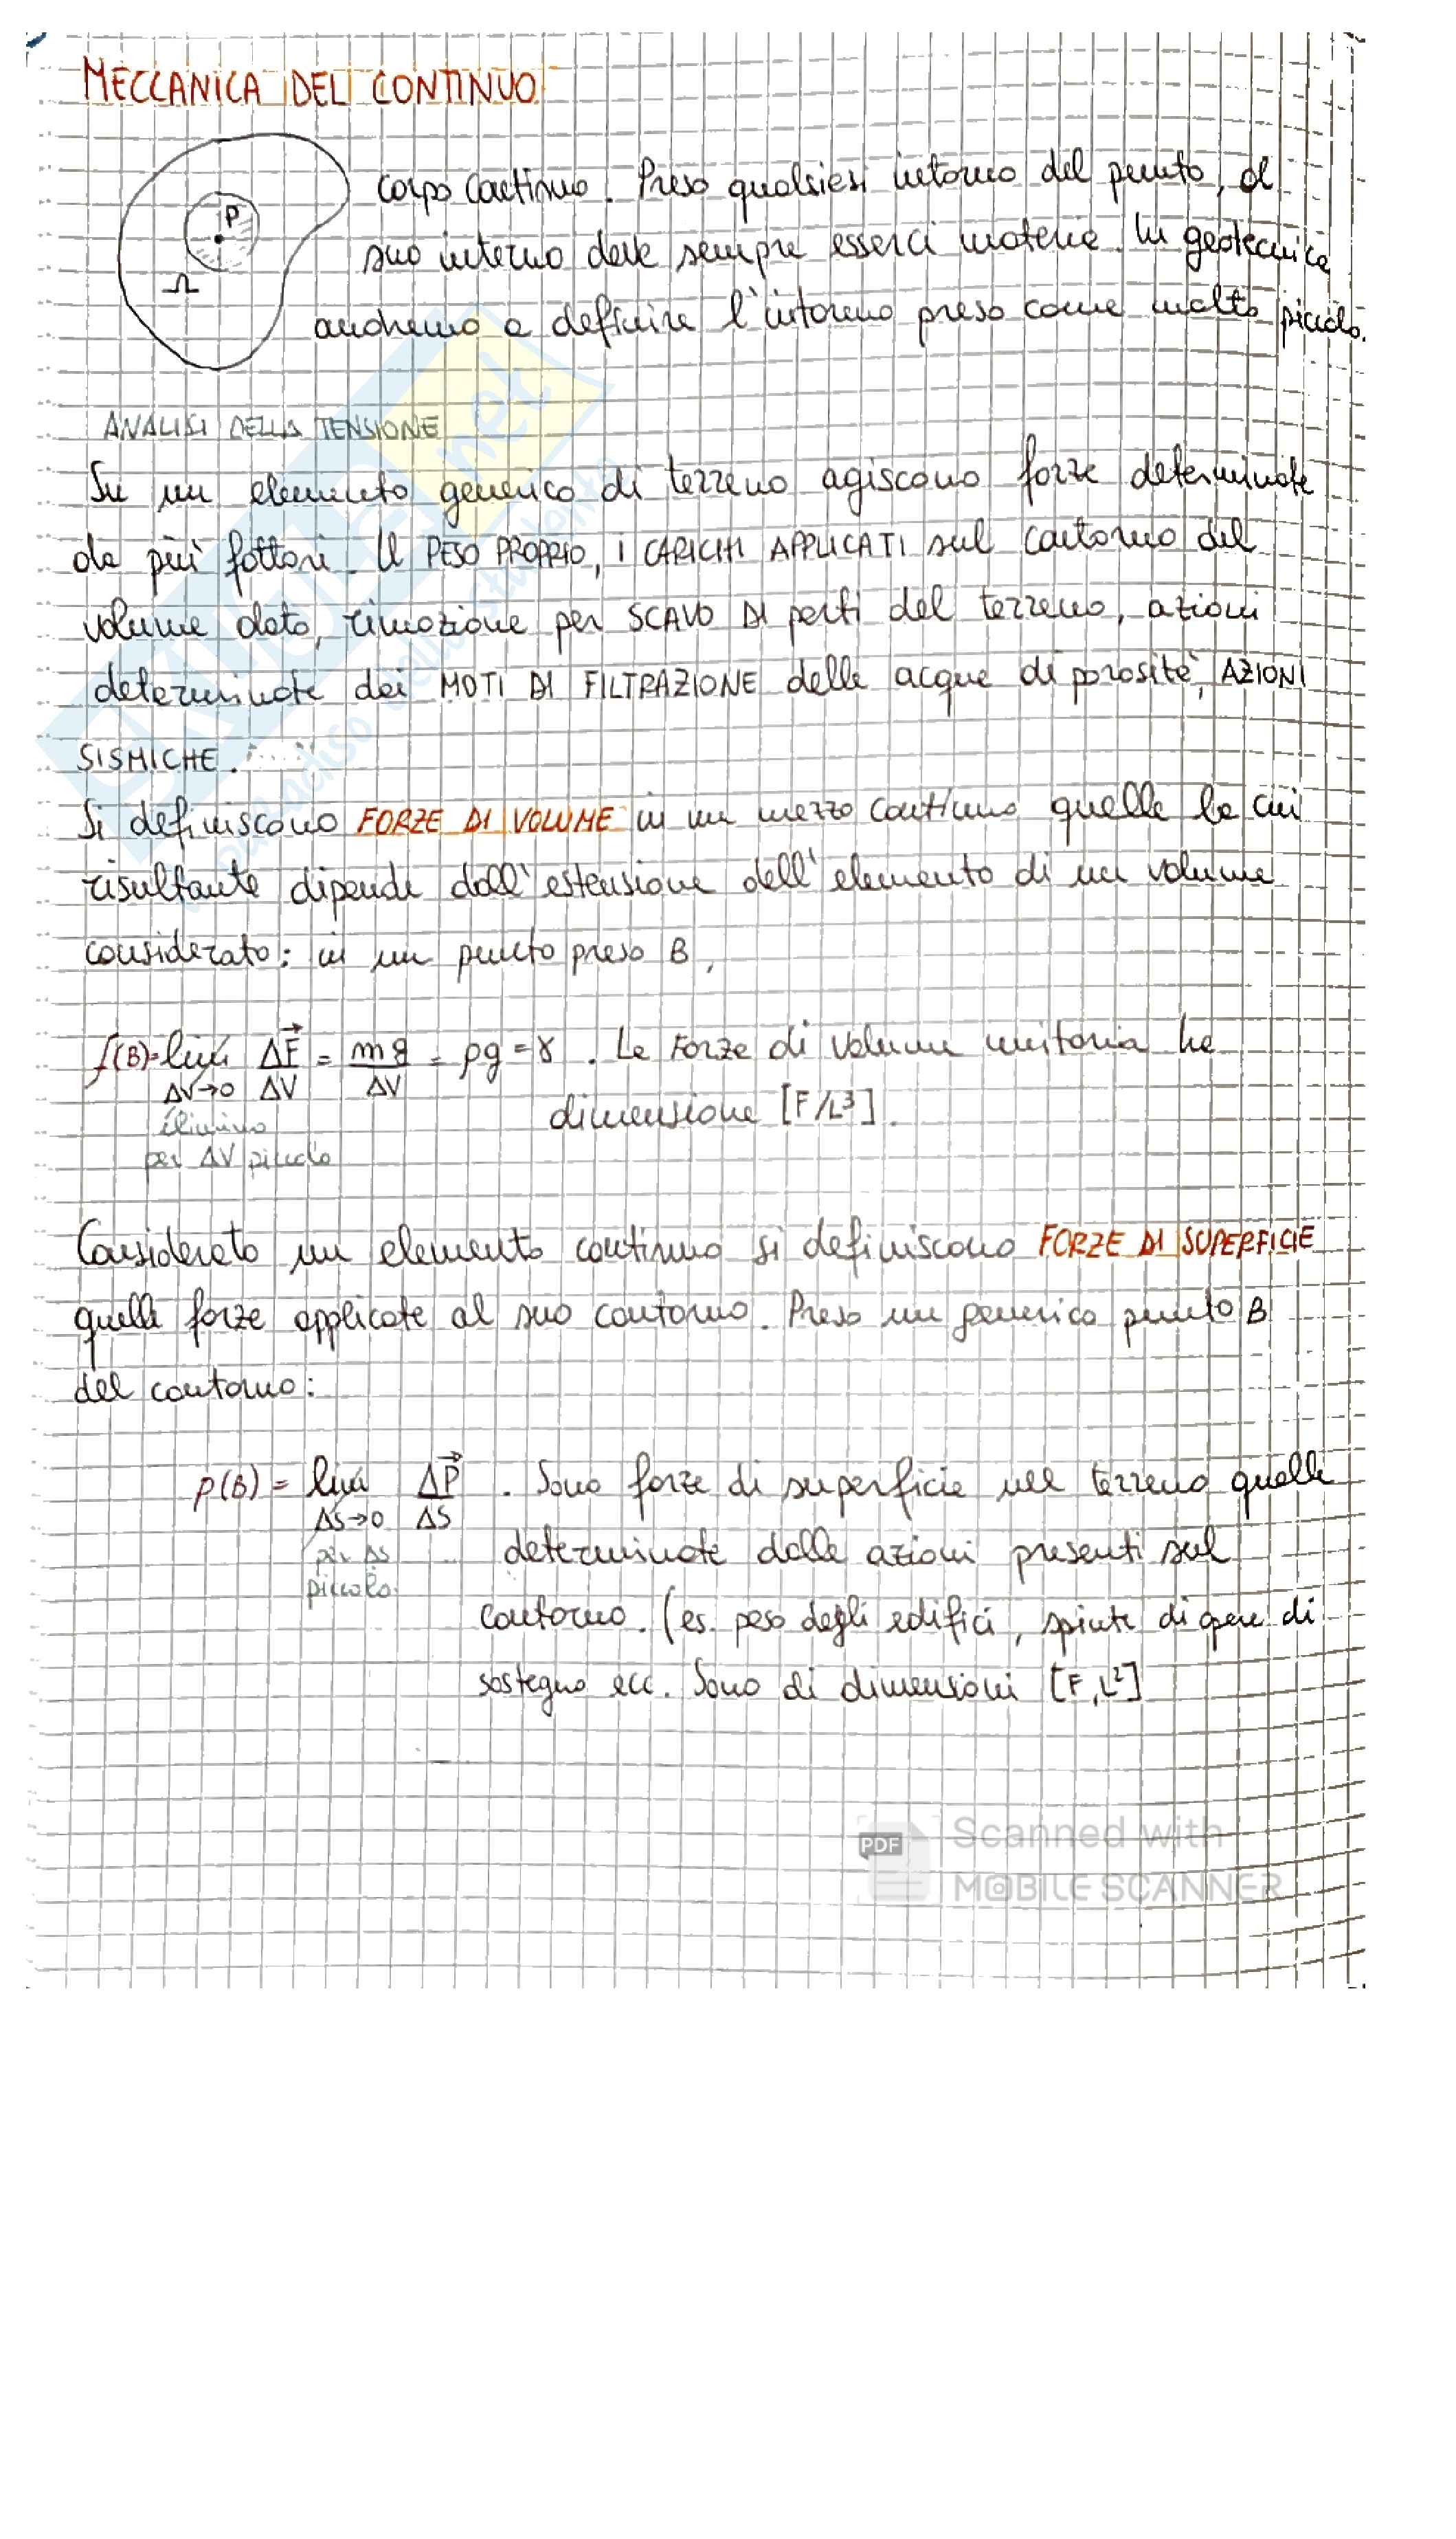 MECCANICA DEL CONTINUO
P
Ω
corpo continuo. Preso qualsiesi intorno del punto, al
suo interno deve sempre esserci materia. In geotecnica
andremo a definire l'intorno preso come molto piccolo.
ANALISI DELLA TENSIONE
Su un elemento generico di terreno agiscono forze determinate
da più fattori. Il PESO PROPRIO, I CARICHI APPLICATI sul contorno del
volume dato, rimozione per SCAVO DI parti del terreno, azioni
determinate dai MOTI DI FILTRAZIONE delle acque di porosità, AZIONI
SISMICHE.
Si definiscono FORZE DI VOLUME in un mezzo continuo quelle la cui
risultante dipende dall'estensione dell'elemento di un volume
considerato: in un punto preso B,
f(B)=lim ΔF/ΔV = mg/ΔV = ρg = γ . La Forza di volume unitaria ha
ΔV→0
dimensione [F/L³].
elimino
per ΔV piccolo
Considerato un elemento continuo si definiscono FORZE DI SUPERFICIE
quelle forze applicate al suo contorno. Preso un generico punto B
del contorno:
p(B) = lim ΔP/ΔS . Sono forze di superficie nel terreno quelle
ΔS→0
per ΔS
piccolo
determinate dalle azioni presenti sul
contorno. (es. peso degli edifici, spinte di opere di
sostegno ecc. Sono di dimensioni [F, L²]
SKUOLA.net
PDF
Scanned with
MOBILE SCANNER